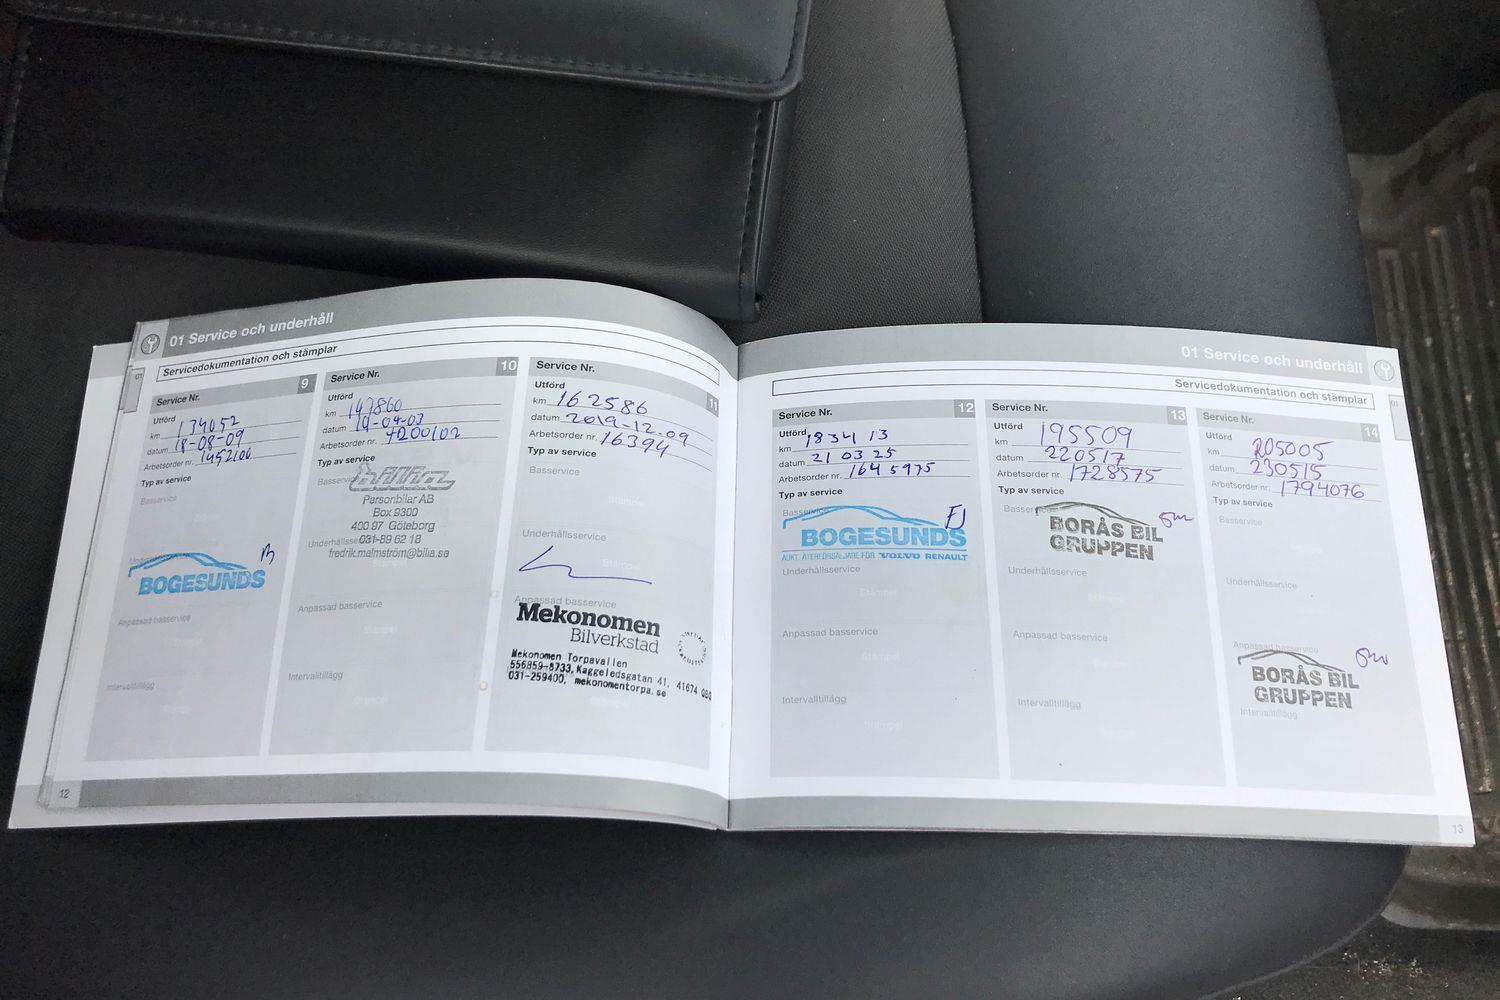 01 Service och underhåll
Servicedokumentation och stämplar
01
Service Nr. 9
Utförd
km 134052
datum 18-08-09
Arbetsorder nr. 1452100
Typ av service
Basservice
BOGESUNDS
Anpassad basservice
Stämpel
Intervalltillägg
Stämpel
12
Service Nr. 10
Utförd
km 147860
datum 19-04-03
Arbetsorder nr. 4200102
Typ av service
Basservice
Personbilar AB
Box 9300
400 97 Göteborg
Underhållsservice
031-89 62 18
fredrik.malmström@bilia.se
Stämpel
Anpassad basservice
Stämpel
Intervalltillägg
Stämpel
Service Nr. 11
Utförd
km 162586
datum 2019-12-09
Arbetsorder nr. 16394
Typ av service
Basservice
Stämpel
Underhållsservice
Stämpel
Anpassad basservice
Mekonomen
Bilverkstad
Mekonomen Torpavallen
556859-8733, Kaggeledsgatan 41, 41674 GBG
031-259400, mekonomentorpa.se
01 Service och underhåll
Servicedokumentation och stämplar
01
Service Nr. 12
Utförd
km 183413
datum 21 03 25
Arbetsorder nr. 1645975
Typ av service
Basservice
EJ
BOGESUNDS
AUKT. ÅTERFÖRSÄLJARE FÖR VOLVO RENAULT
Underhållsservice
Stämpel
Anpassad basservice
Stämpel
Intervalltillägg
Stämpel
Service Nr. 13
Utförd
km 195509
datum 220517
Arbetsorder nr. 1728575
Typ av service
Basservice
BORÅS BIL
GRUPPEN
Underhållsservice
Anpassad basservice
Intervalltillägg
Service Nr. 14
Utförd
km 205005
datum 230515
Arbetsorder nr. 1794076
Typ av service
Basservice
Underhållsservice
Anpassad basservice
BORÅS BIL
GRUPPEN
Intervalltillägg
13